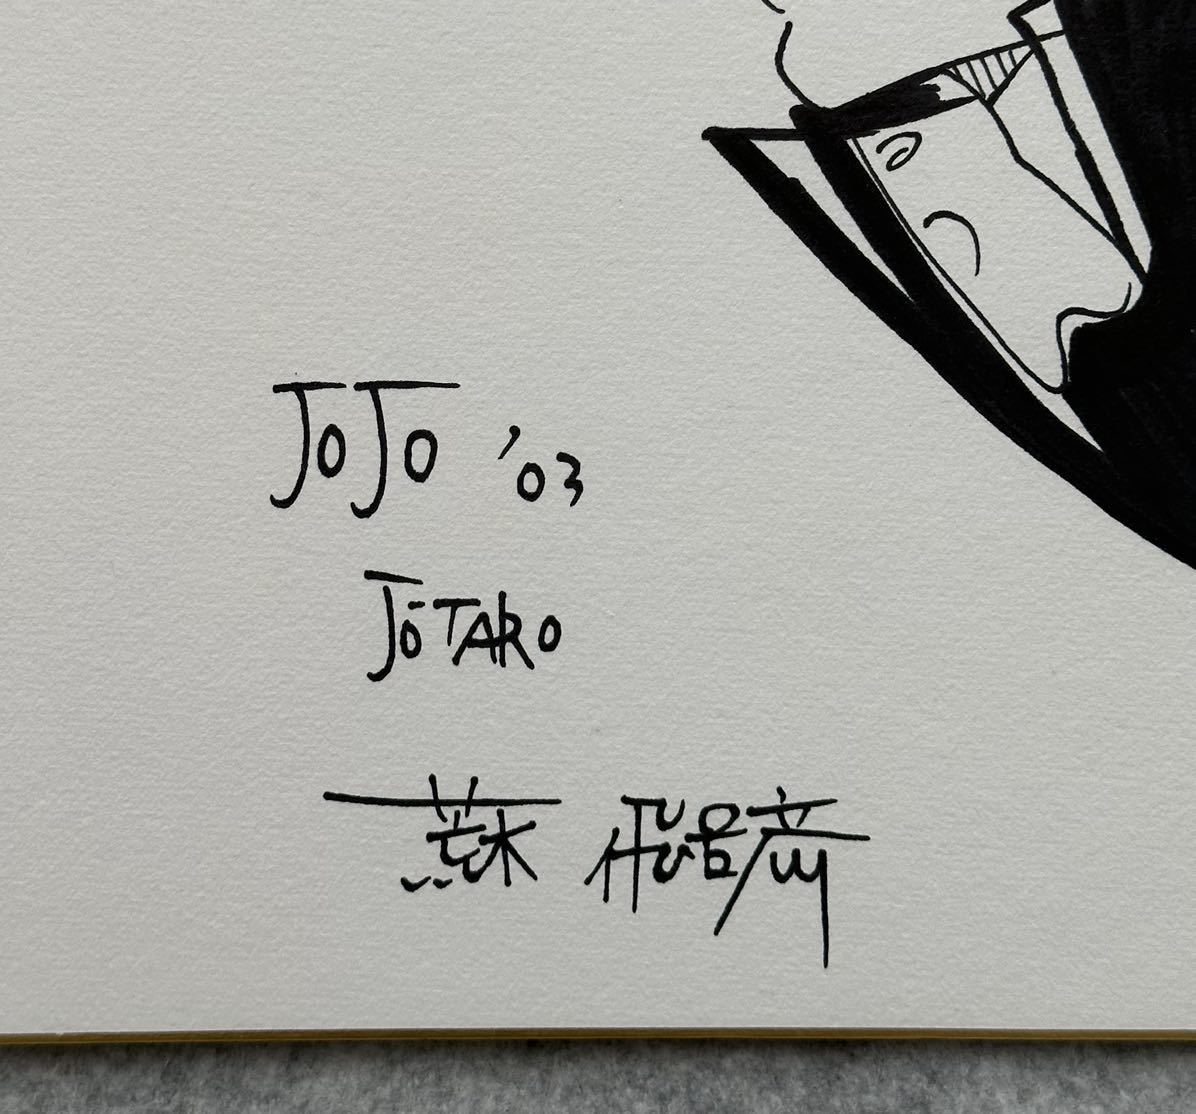 JoJo '03
JōTARO
荒木 飛呂彦